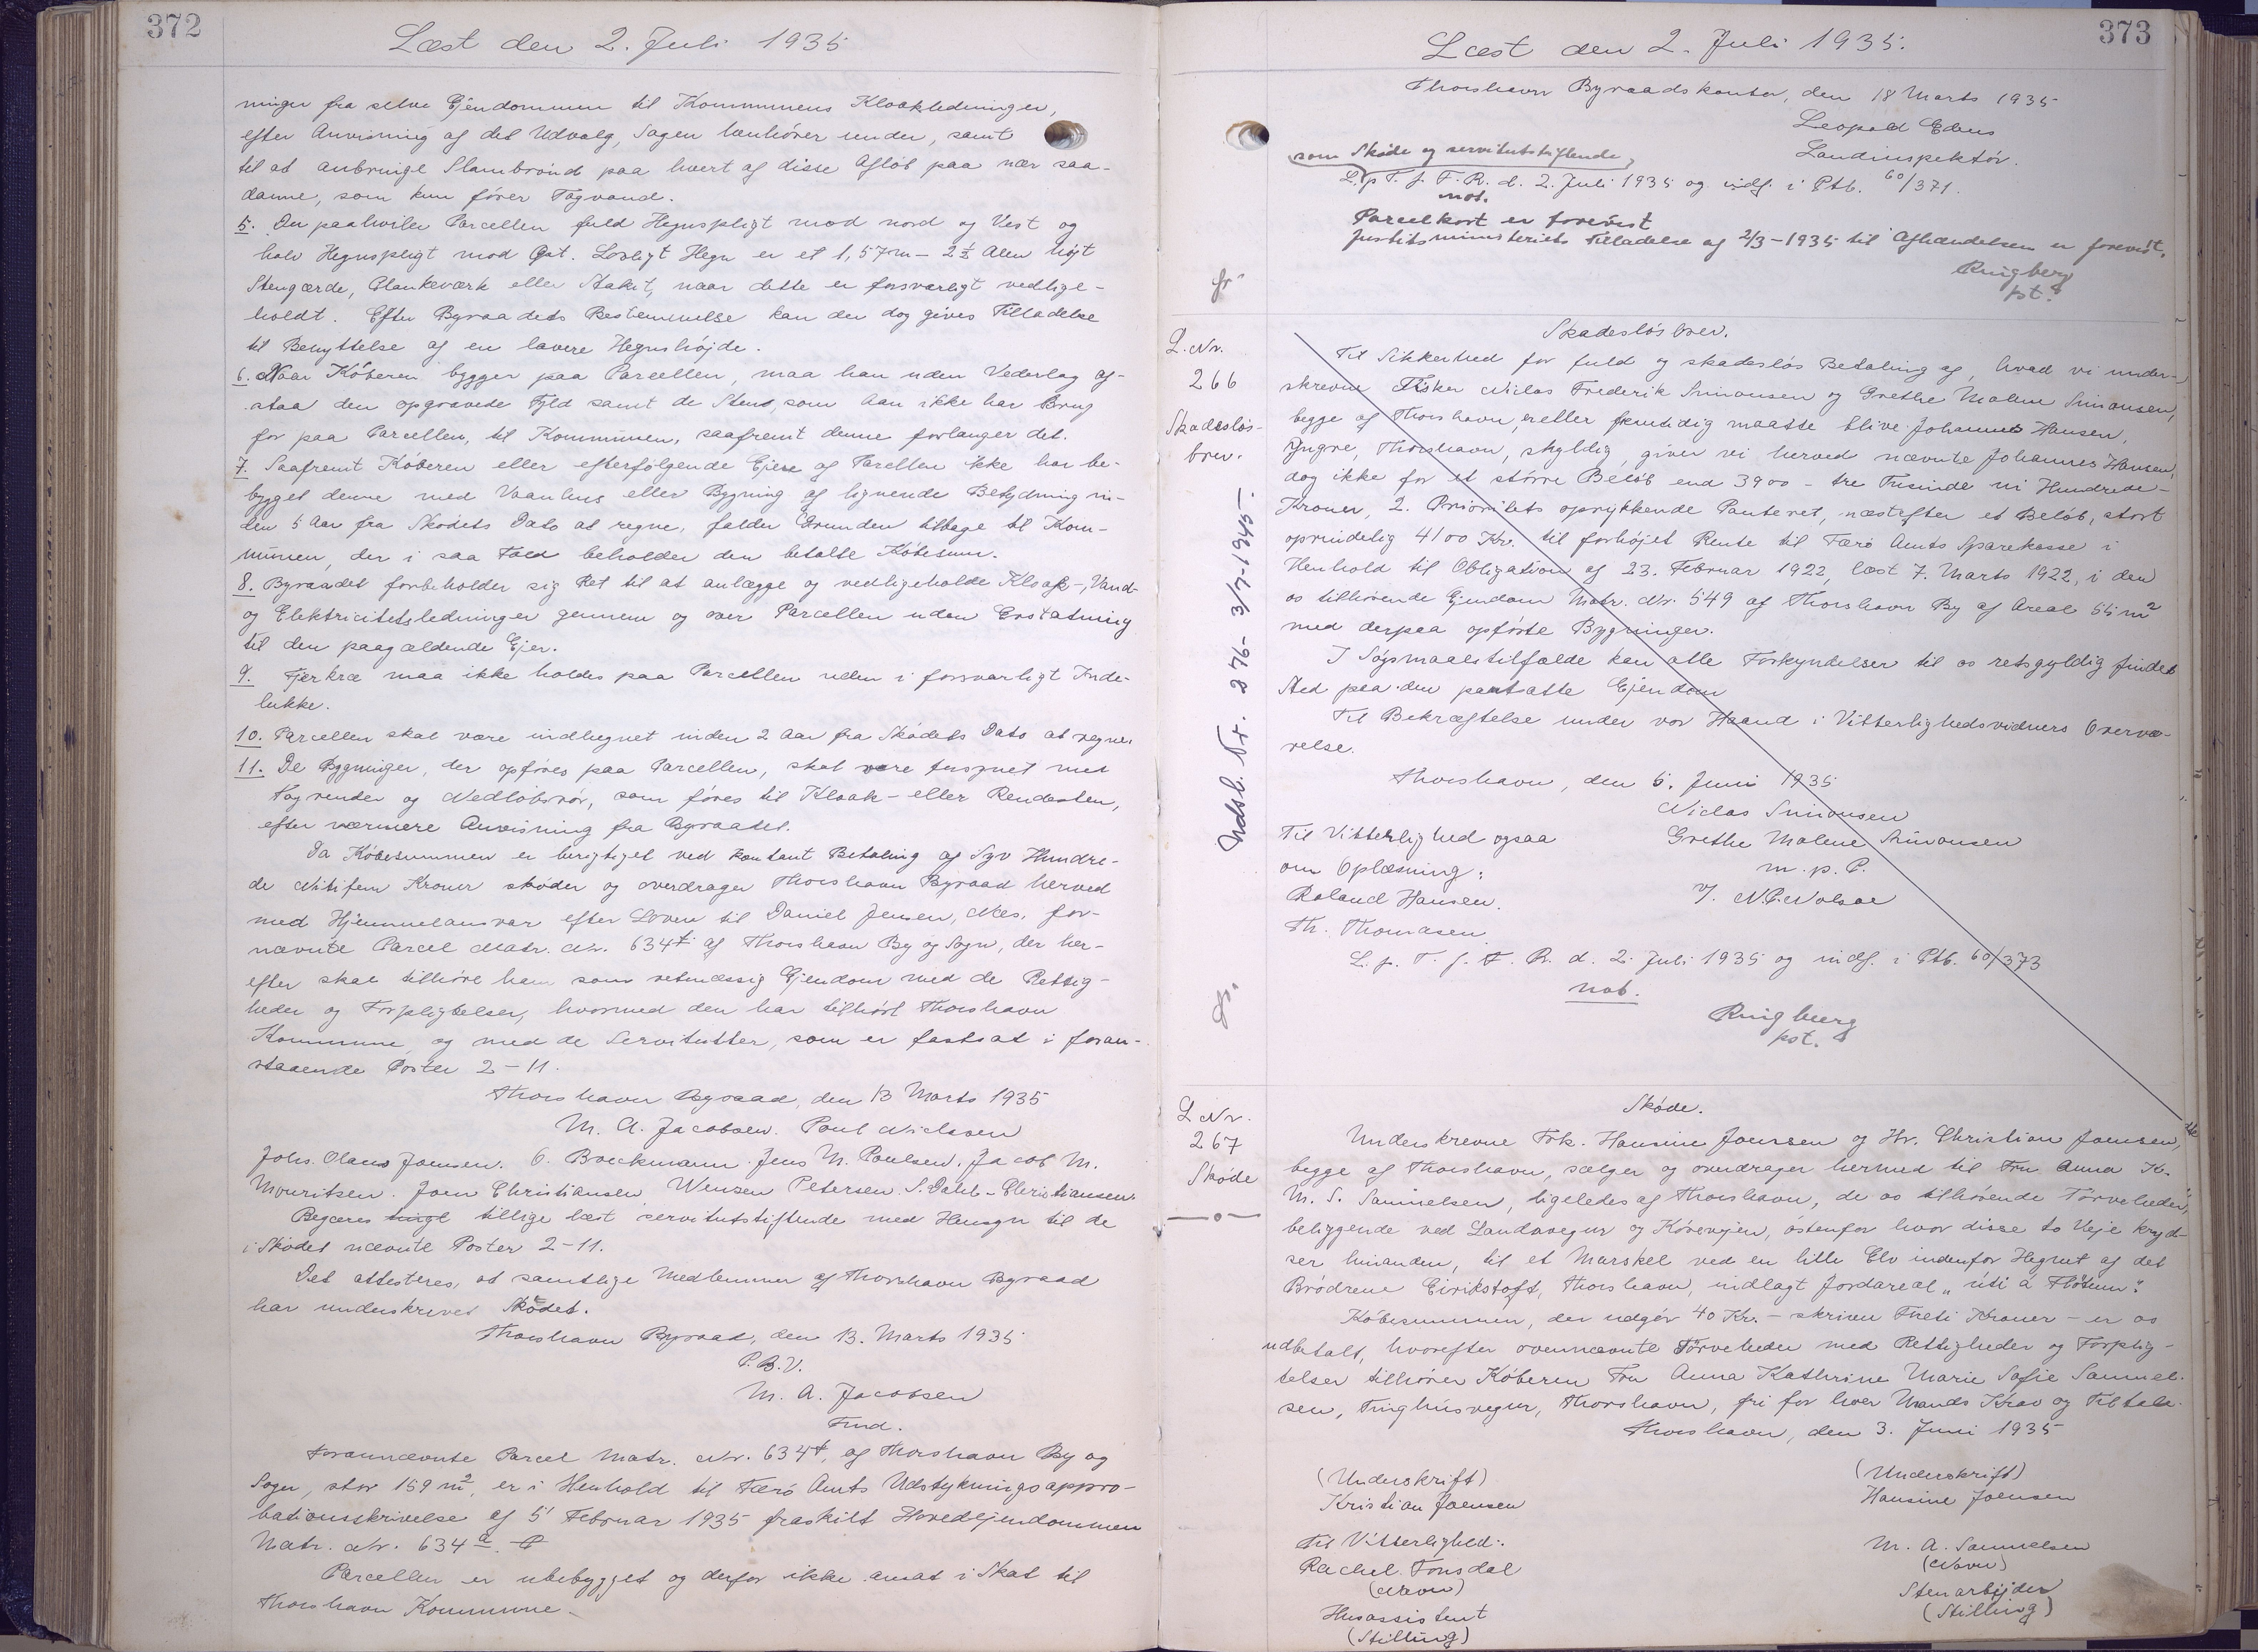 372
Læst den 2. Juli 1935
ninger fra selve Ejendommen til Kommunens Kloakledninger,
efter Anvisning af det Udvalg, Sagen henhører under, samt
til at anbringe Slambrønd paa hvert af disse Afløb paa nær saa-
danne, som kun fører Tagvand.
5. Der paahviler Parcellen fuld Hegnspligt mod nord og Vest og
halv Hegnspligt mod Øst. Lovligt Hegn er et 1,57 m - 2½ Alen højt
Stengærde, Plankeværk eller Stakit, naar dette er forsvarligt vedlige-
holdt. Efter Byraadets Bestemmelse kan der dog gives Tilladelse
til Benyttelse af en lavere Hegnshøjde.
6. Naar Køberen bygger paa Parcellen, maa han uden Vederlag af-
staa den opgravede Fyld samt de Stene, som han ikke har Brug
for paa Parcellen, til Kommunen, saafremt denne forlanger det.
7. Saafremt Køberen eller efterfølgende Ejere af Parcellen ikke har be-
bygget denne med Vaanhus eller Bygning af lignende Betydning in-
den 5 Aar fra Skødets Dato at regne, falder Grunden tilbage til Kom-
munen, der i saa Fald beholder den betalte Købesum.
8. Byraadet forbeholder sig Ret til at anlægge og vedligeholde Kloak-, Vand-
og Elektricitetsledninger gennem og over Parcellen uden Erstatning
til den paagældende Ejer.
9. Fjerkræ maa ikke holdes paa Parcellen uden i forsvarligt Inde-
lukke.
10. Parcellen skal være indhegnet inden 2 Aar fra Skødets Dato at regne.
11. De Bygninger, der opføres paa Parcellen, skal være forsynet med
Tagrender og Nedløbsrør, som føres til Kloak- eller Rendesten,
efter nærmere Anvisning fra Byraadet.
Da Købesummen er berigtiget ved kontant Betaling af Syv Hundre-
de Nitifem Kroner skøder og overdrager Thorshavn Byraad herved
med Hjemmelansvar efter Loven til Daniel Jensen, Nes, for-
nævnte Parcel Matr. Nr. 634t af Thorshavn By og Sogn, der her-
efter skal tilhøre ham som retmæssig Ejendom med de Rettig-
heder og Forpligtelser, hvormed den har tilhørt Thorshavn
Kommune, og med de Servitutter, som er fastsat i foran-
staaende Poster 2-11.
Thorshavn Byraad, den 13 Marts 1935
M. A. Jacobsen. Poul Nielsen
Johs. Olavs Joensen. O. Brockmann. Jens M. Poulsen. Jacob M.
Mouritsen. Joen Christiansen Wenzen Petersen. S. Dahl-Christiansen.
Begæres tingl tillige læst servitutstiftende med Hensyn til de
i Skødet nævnte Poster 2-11.
Det attesteres, at samtlige Medlemmer af Thorshavn Byraad
har underskrevet Skødet.
Thorshavn Byraad, den 13. Marts 1935
P.B.V.
M. A. Jacobsen
Fmd.
Forannævnte Parcel Matr. Nr. 634t, af Thorshavn By og
Sogn, stor 159 m², er i Henhold til Færø Amts Udstykningsappro-
bationsskrivelse af 5' Februar 1935 fraskilt Hovedejendommen
Matr. Nr. 634a.
Parcellen er ubebygget og derfor ikke ansat i Skat til
Thorshavn Kommune.
373
Læst den 2. Juli 1935.
Thorshavn Byraadskontor, den 18 Marts 1935
Leopold
Landinspektør.
som Skøde og servitutstiftende,
L. p T. f. F. R. d. 2. Juli 1935 og indf. i Ptb. 60/371.
not.
Parcelkort er forevist
Justitsministeriets Tilladelse af 2/3-1935 til Afhændelsen er forevist.
Ringberg
kst.
L. Nr.
266
Skadesløs-
brev.
Udsl. Nr. 276- 3/7-1945-
Skadesløsbrev.
Til Sikkerhed for fuld og skadesløs Betaling af, hvad vi under-
skrevne Fisker Niclas Frederik Simonsen og Grethe Malene Simonsen,
begge af Thorshavn, er eller fremtidig maatte blive Johannes Hansen,
Yngre, Thorshavn, skyldig, giver vi herved nævnte Johannes Hansen,
dog ikke for et større Beløb end 3900 - tre Tusinde ni Hundrede-
Kroner, 2. Prioritets oprykkende Panteret, næstefter et Beløb, stort
oprindelig 4100 Kr. til forhøjet Rente til Færø Amts Sparekasse i
Henhold til Obligation af 23. Februar 1922, læst 7. Marts 1922, i den
os tilhørende Ejendom Matr. Nr. 549 af Thorshavn By af Areal 55 m²
med derpaa opførte Bygninger.
I Søgsmaalstilfælde kan alle Forkyndelser til os retsgyldig finde
Sted paa den pantsatte Ejendom
Til Bekræftelse under vor Haand i Vitterlighedsvidners Overvæ-
relse.
Thorshavn, den 5. Juni 1935
Niclas Simonsen
Til Vitterlighed ogsaa
Grethe Malene Simonsen
om Oplæsning:
m. p. P.
Roland Hansen.
v/. N.P. Nolsøe
Th. Thomasen
L. p. T. f. F. R. d. 2. Juli 1935 og indf. i Ptb. 60/373
not.
Ringberg
kst.
L Nr.
267
Skøde
Skøde.
Underskrevne Frk. Hansine Joensen og Hr. Christian Joensen,
begge af Thorshavn, sælger og overdrager hermed til Fru Anna K.
M. S. Samuelsen, ligeledes af Thorshavn, de os tilhørende Tørveheder,
beliggende ved Landavegur og Kóvevejen, østenfor hvor disse to Veje kryd-
ser hinanden, til et Marskel ved en lille Elv indenfor Hegnet af det
Brødrene Eirikstoft, Thorshavn, indlagt Jordareal „úti á Fløtum".
Købesummen, der udgør 40 Kr. - skriver Fireti Kroner - er os
udbetalt, hvorefter ovennævnte Tørveheder med Rettigheder og Forplig-
telser tilhører Køberen Fru Anna Kathrine Marie Sofie Samuel-
sen, Tinghúsvegur, Thorshavn, fri for hver Mands Krav og Tiltale.
Thorshavn, den 3. Juni 1935
(Underskrift)
(Underskrift)
Kristian Joensen
Hansine Joensen
Til Vitterlighed:
Rachel Tonsdal
(Navn)
Husassistent
(Stilling)
M. A. Samuelsen
(Navn)
Stenarbejder
(Stilling)